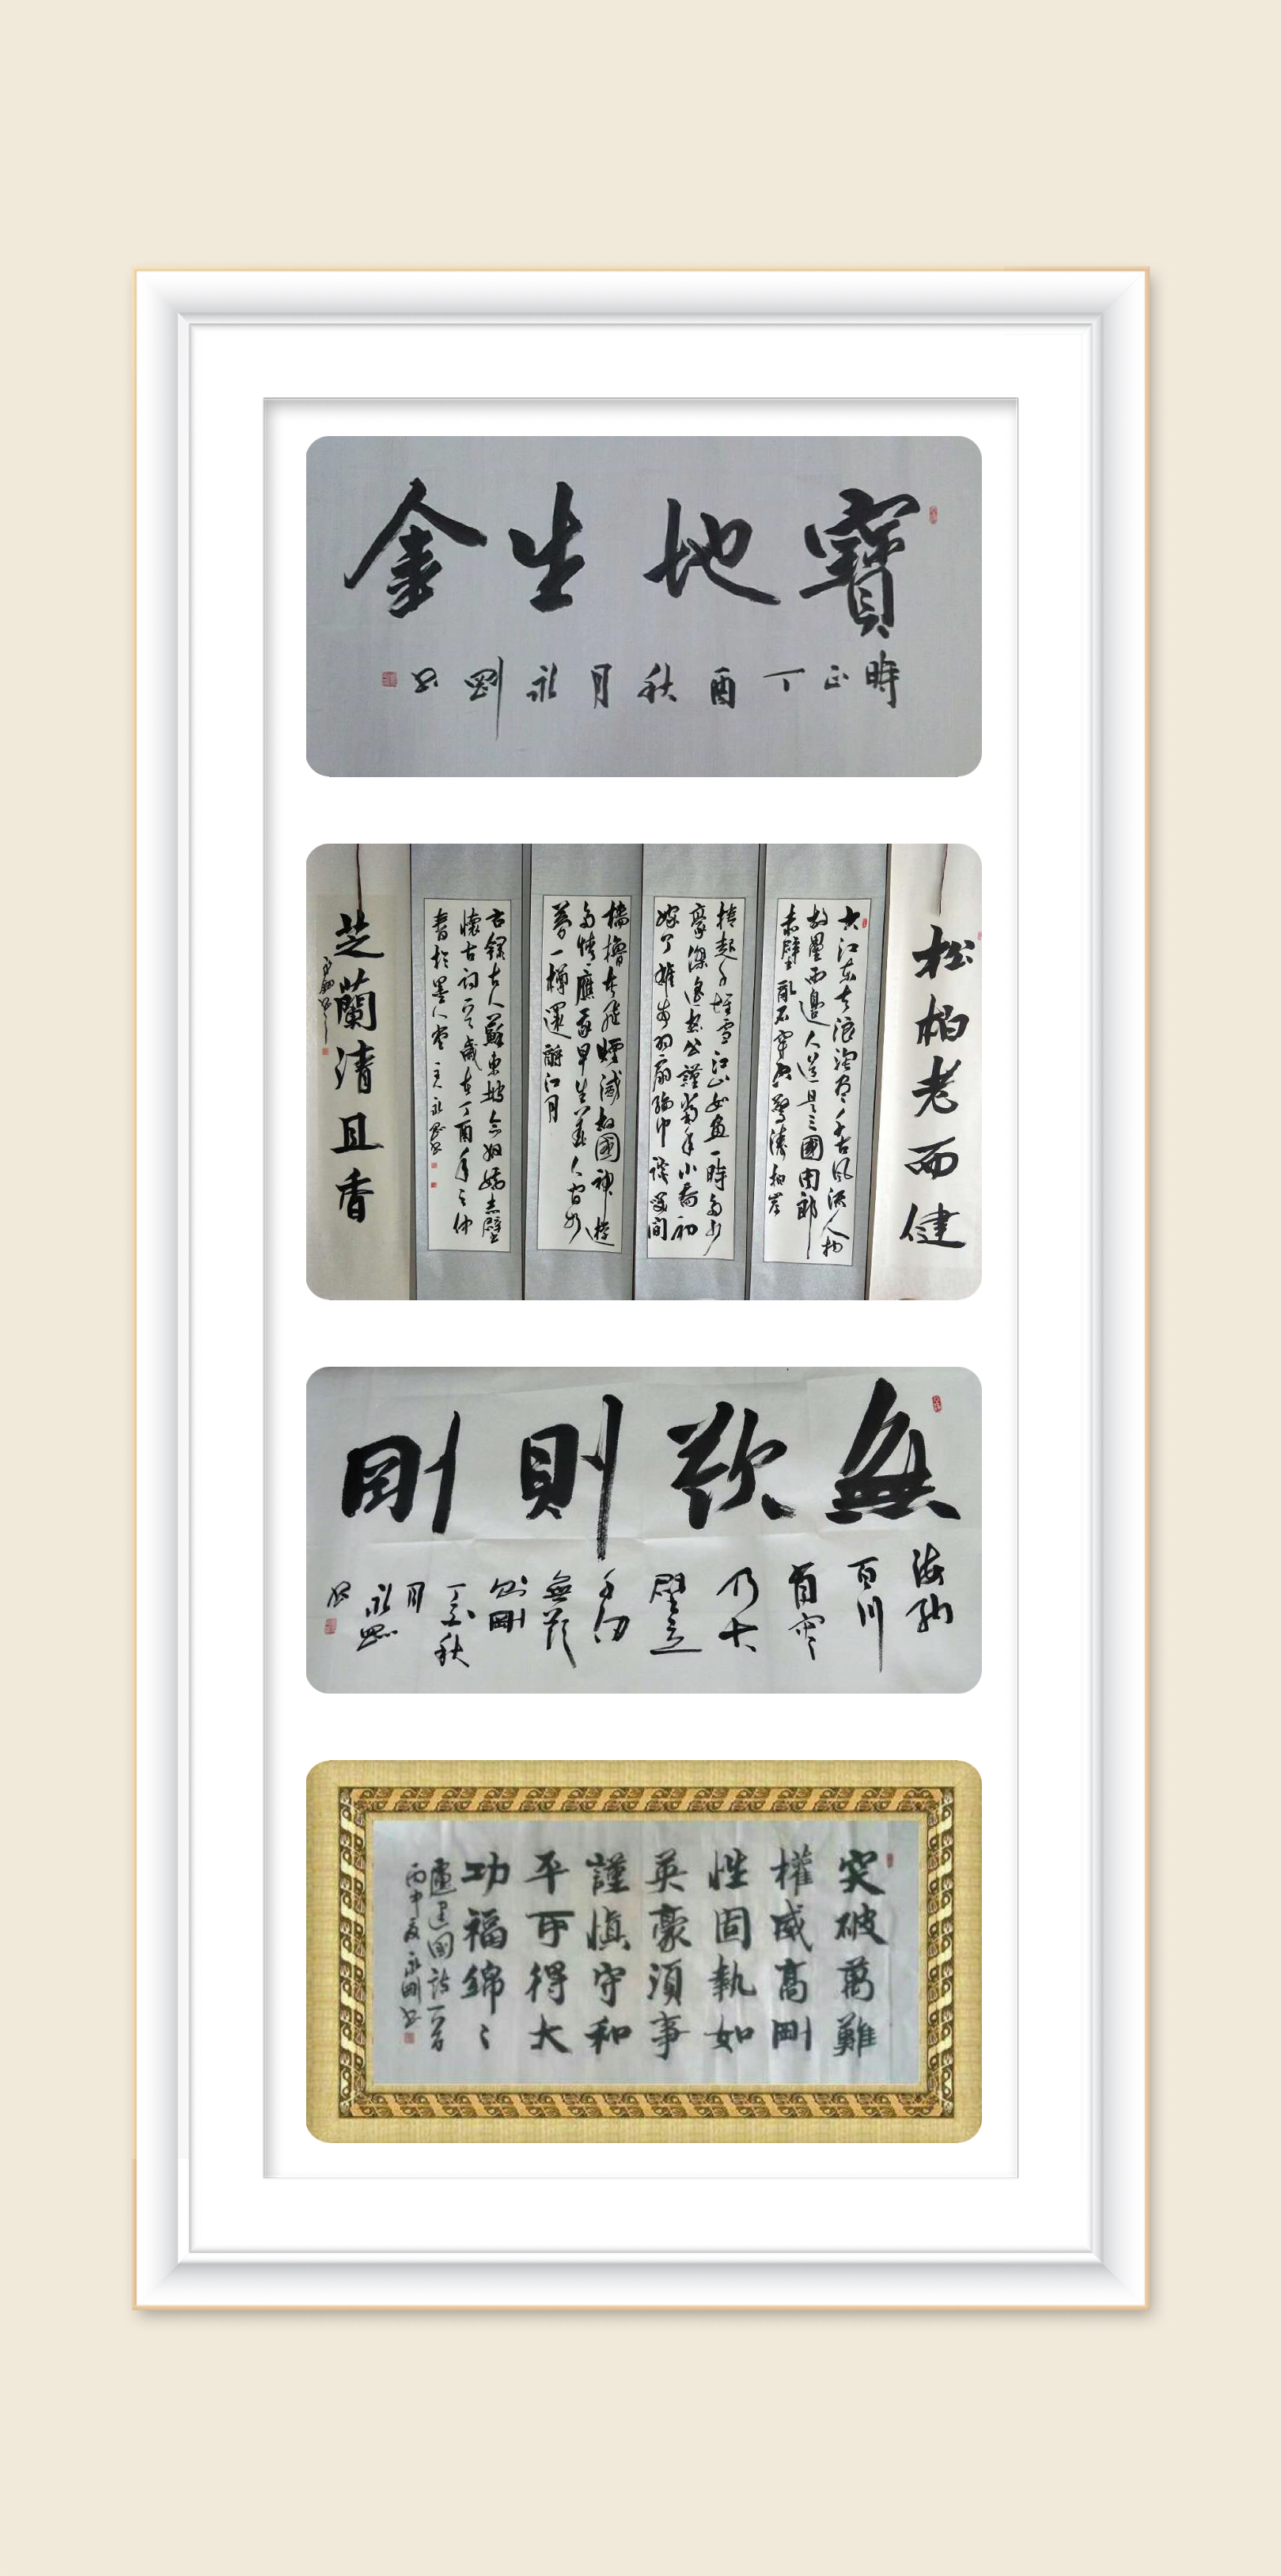 寶地生金
時正丁酉秋月永剛書
松柏老而健
大江东去浪淘盡千古風流人物
故壘西邊人道是三國周郎
赤壁亂石穿空驚濤拍岸
捲起千堆雪江山如畫一時多少
豪傑遙想公謹當年小喬初
嫁了雄姿羽扇綸巾談笑間
檣櫓灰飛煙滅故國神遊
多情應笑我早生華人间如
夢一樽還酹江月
右録古人蘇東坡念奴嬌赤壁
懷古詞一首歲在丁酉年之仲
春於墨人堂主人永剛書
芝蘭清且香
無欲則剛
海納
百川
有容
乃大
壁立
千仞
無欲
則剛
丁酉秋
月
永剛
書
突破萬難
權威高剛
性固執如
英豪須事
謹慎守和
平可得大
功福綿〻
盧建國詩一首
丙申夏永剛書